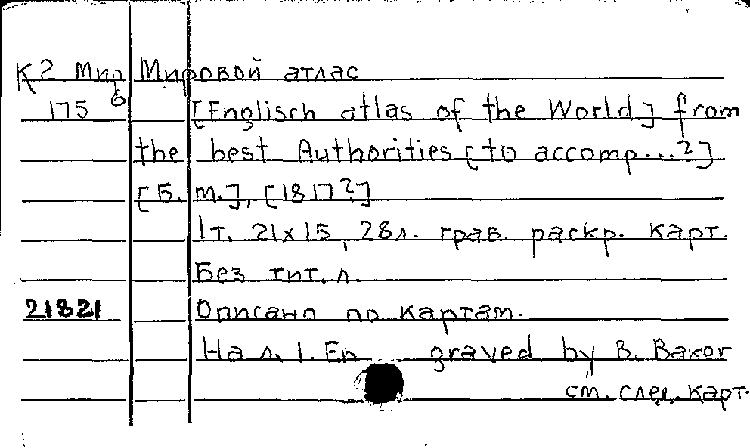 К2 Мир Мировой атлас
175 б [Englisch atlas of the World] from
the best Authorities [to accomp...?]
[Б. м.], [1817?]
1т. 21x15, 28л. грав. раскр. карт.
Без тит. л.
21821 Описано по картам.
На л. 1. En graved by B. Baker
см. след. карт.